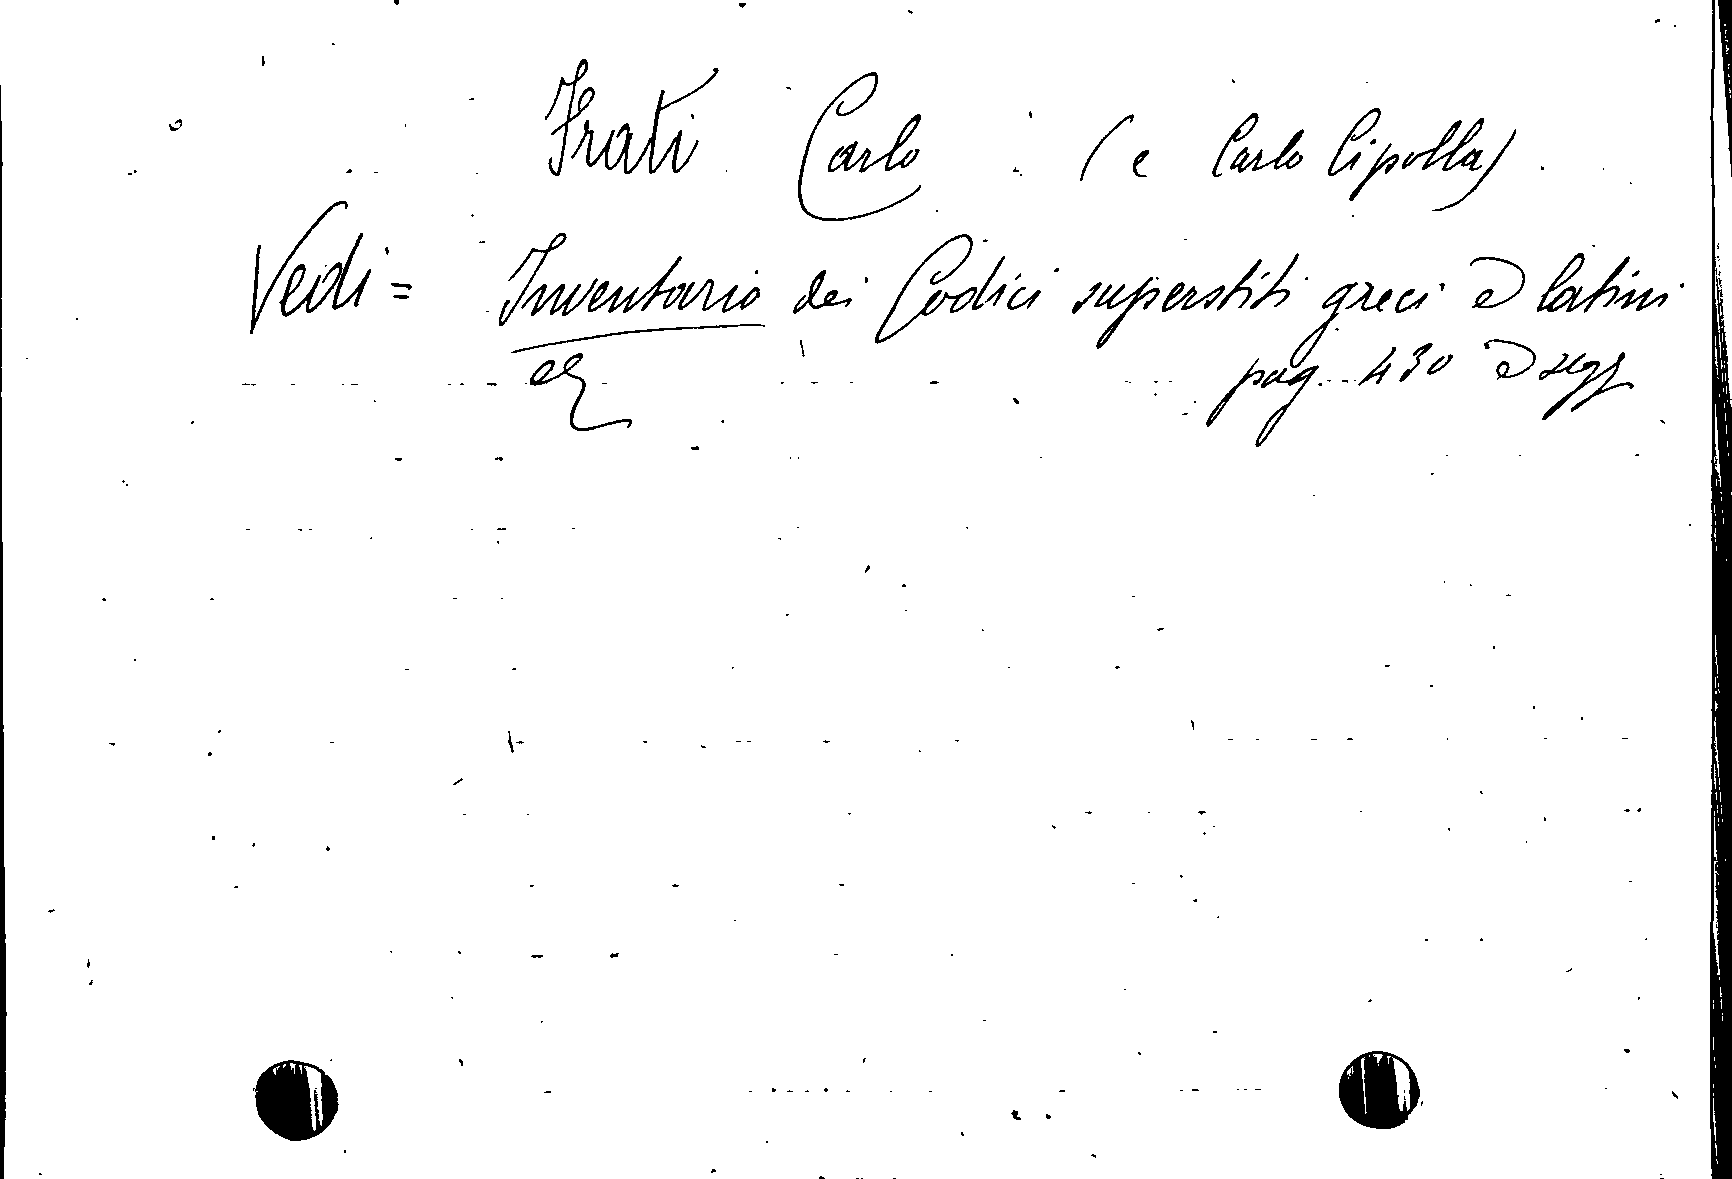 Frati Carlo (e Carlo Cipolla)
Vedi = Inventario dei Codici superstiti greci e latini
pag. 430 e segg